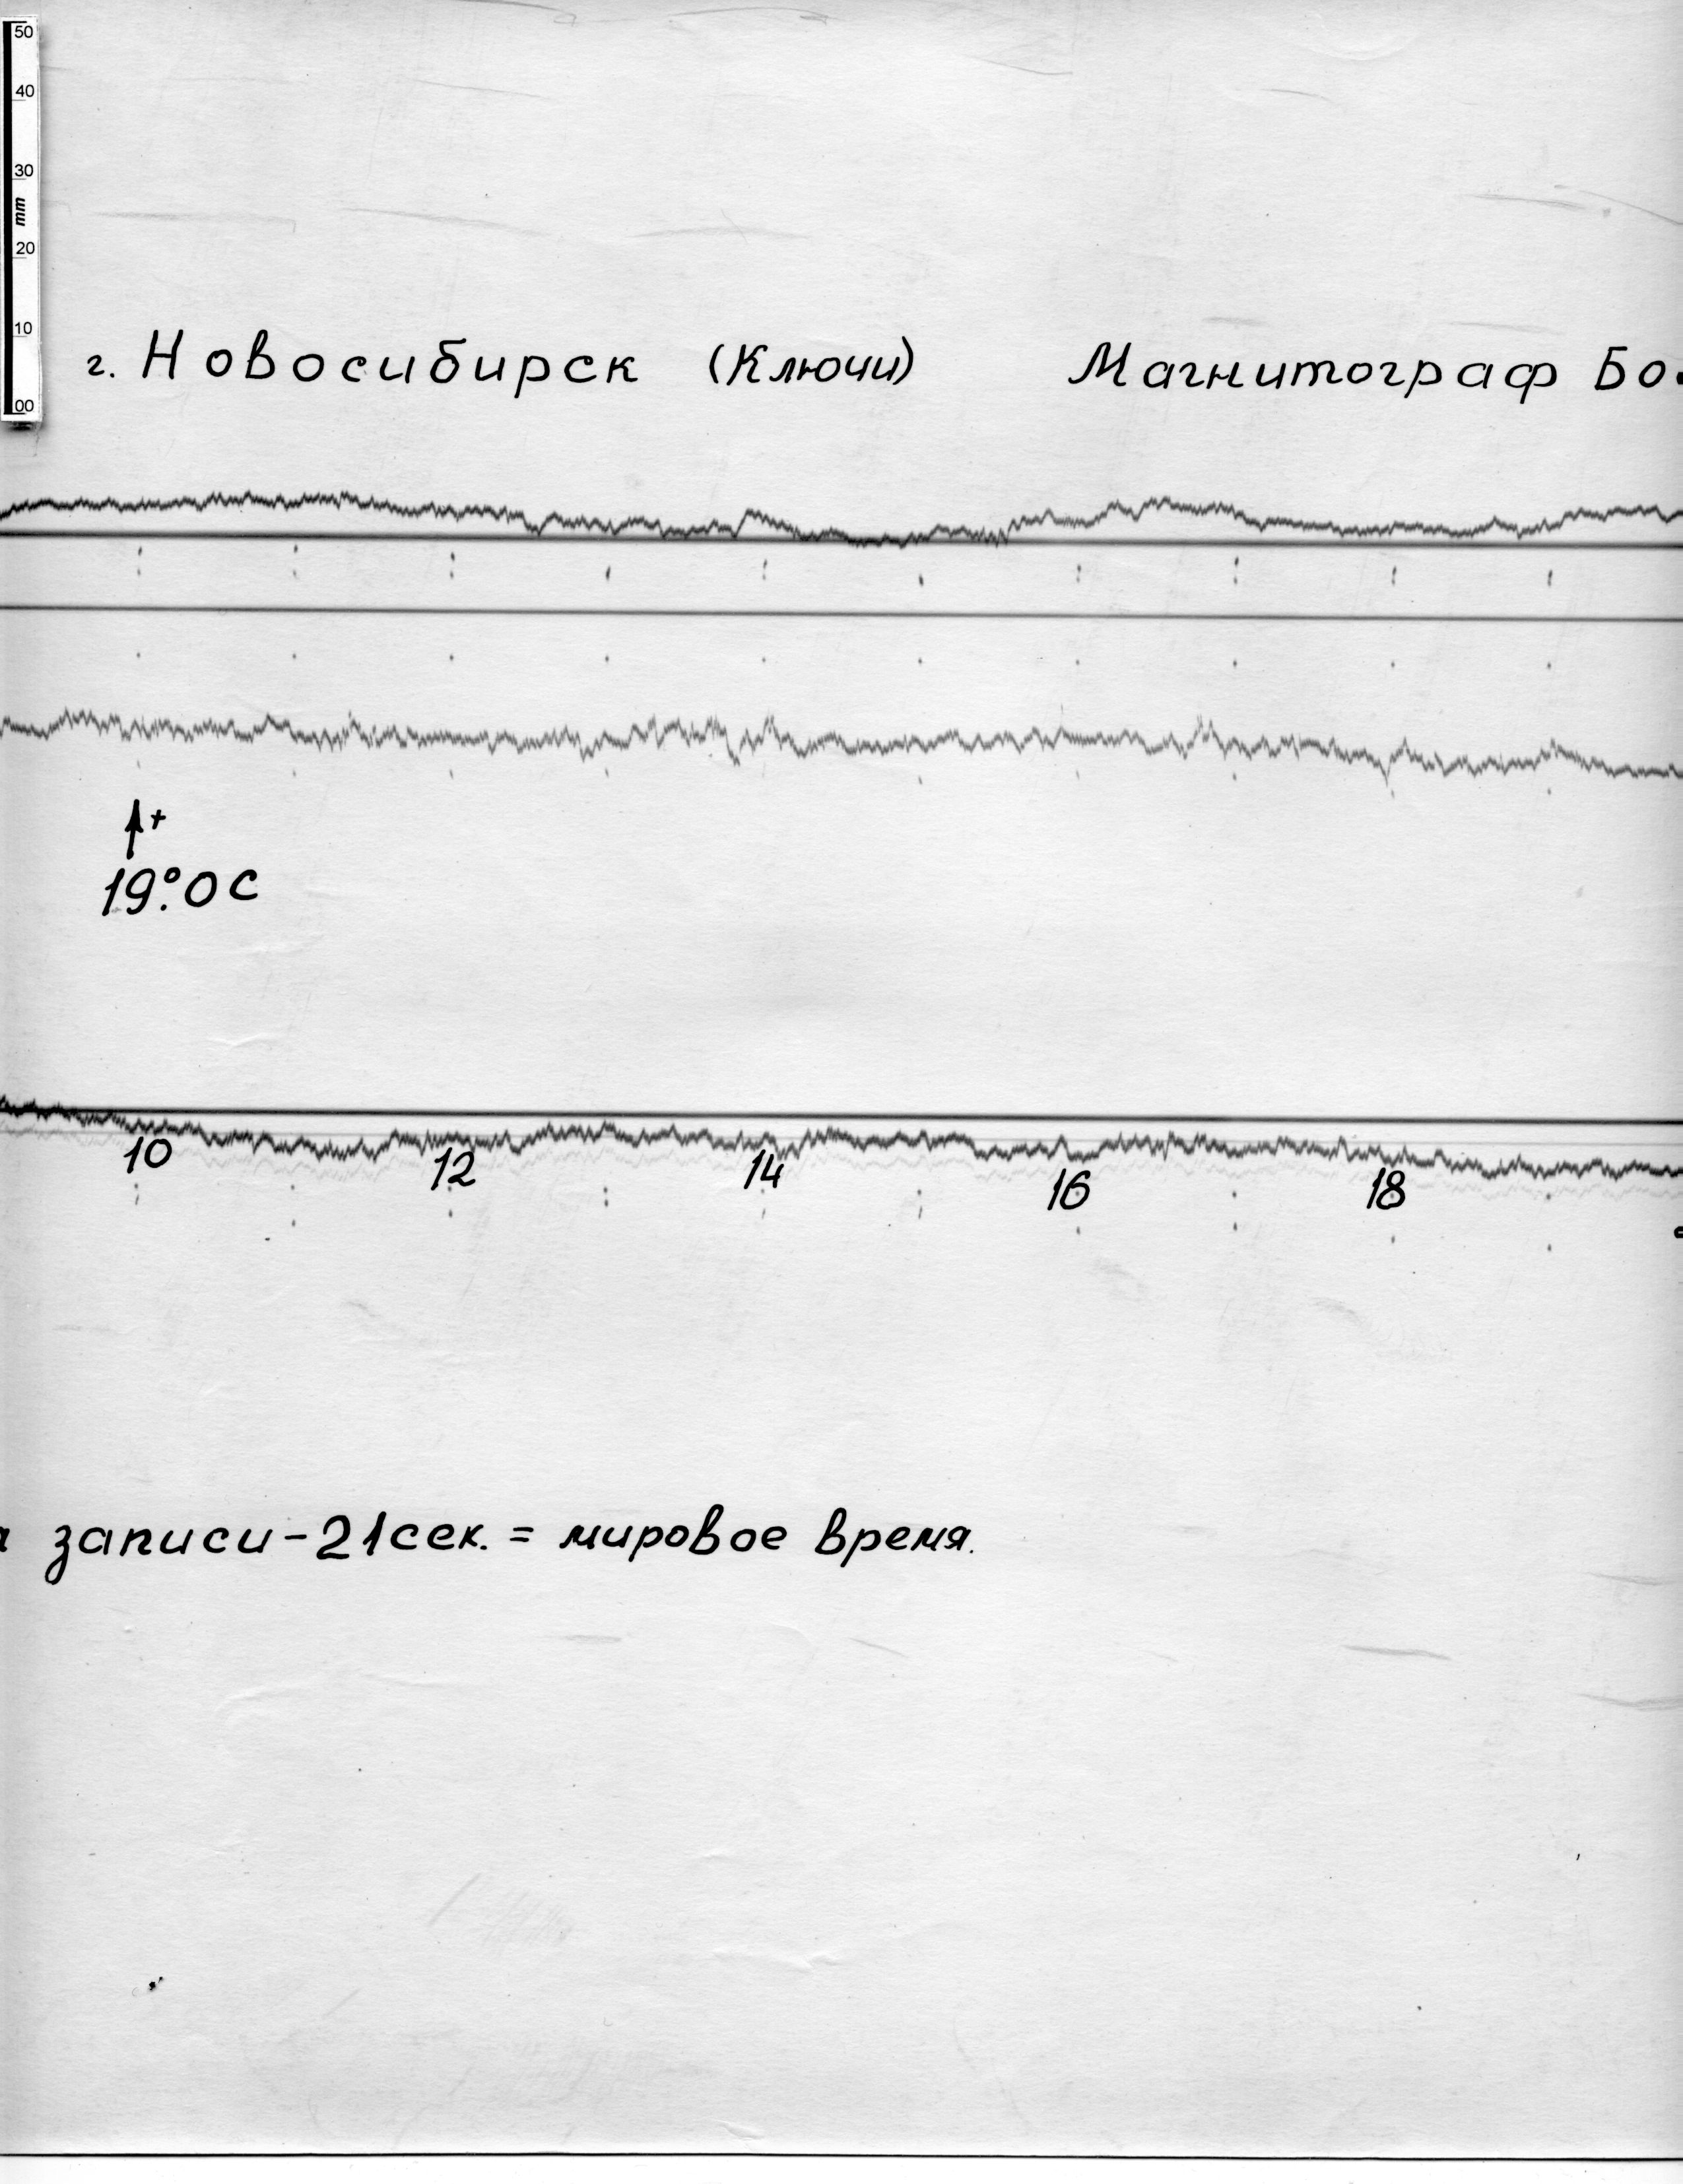 50
40
30
mm
20
10
00
г. Новосибирск (Ключи) Магнитограф Бо
+
19°.0 С
10 12 14 16 18
записи - 21 сек. = мировое время.